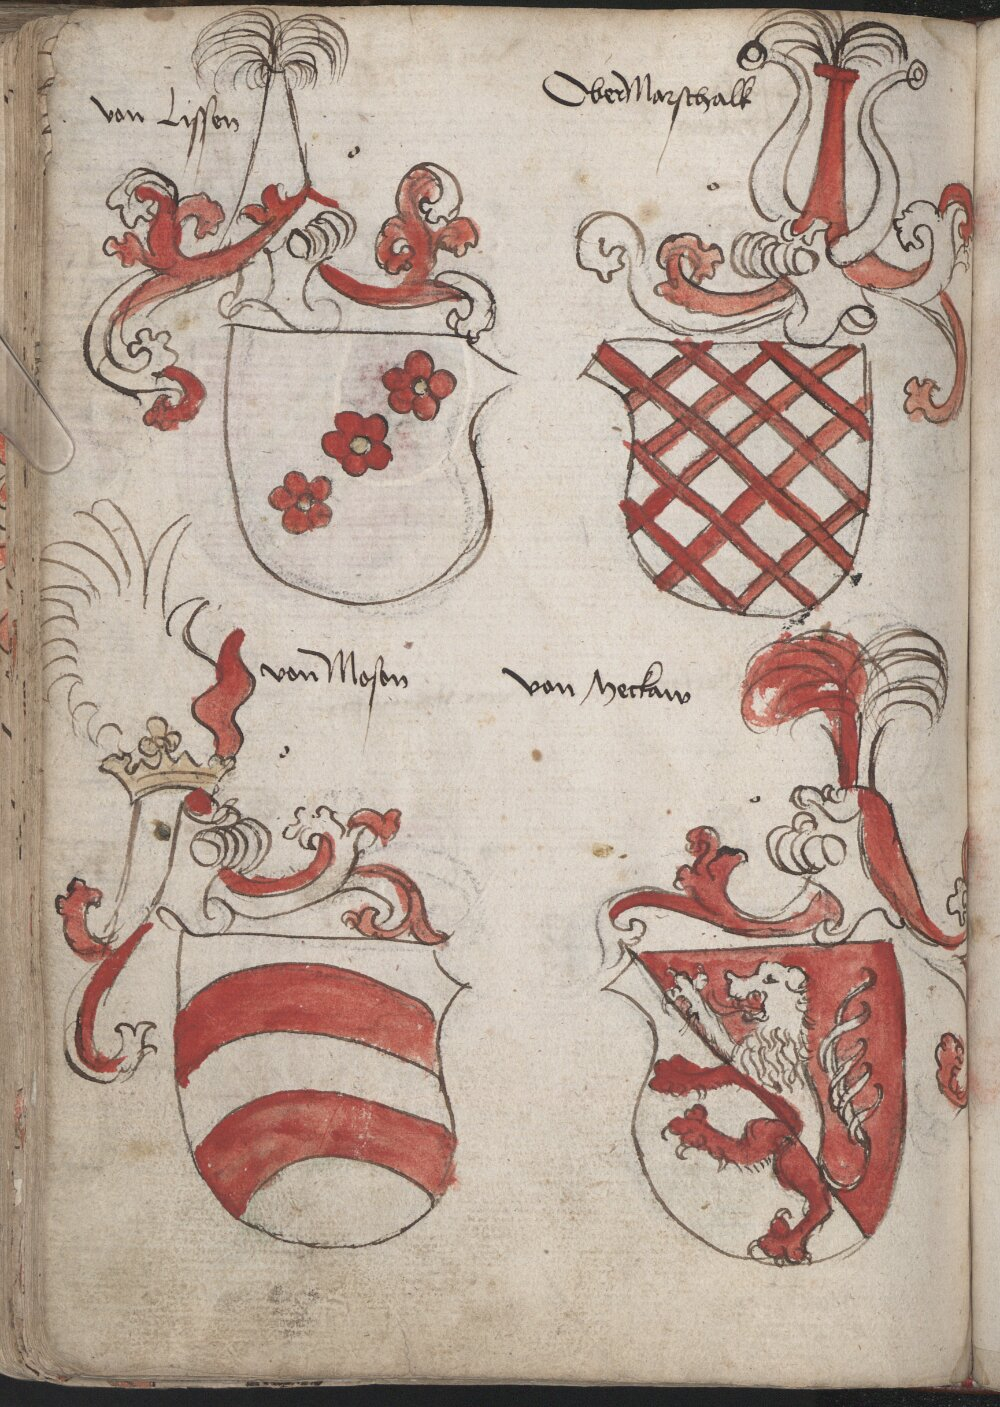 von Lissen
OberMarschalk
von Mosen
von Heckaw